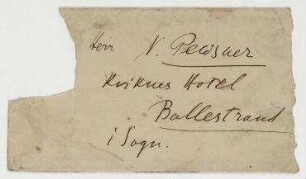 Herr N. Pevsner
Kviknes Hotel
Ballestrand
i Sogn.